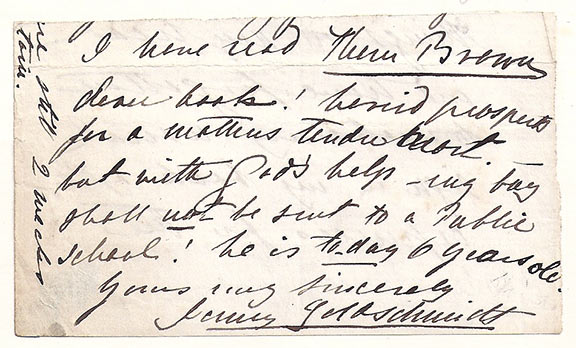 I have read Thom Brown
dear book! horrid prospects
for a mothers tender heart.
but with God's help - my boy
shall not be sent to a Public
school! he is to-day 6 years old.
yours very sincerely
Jenny Goldschmidt
still 2 weeks